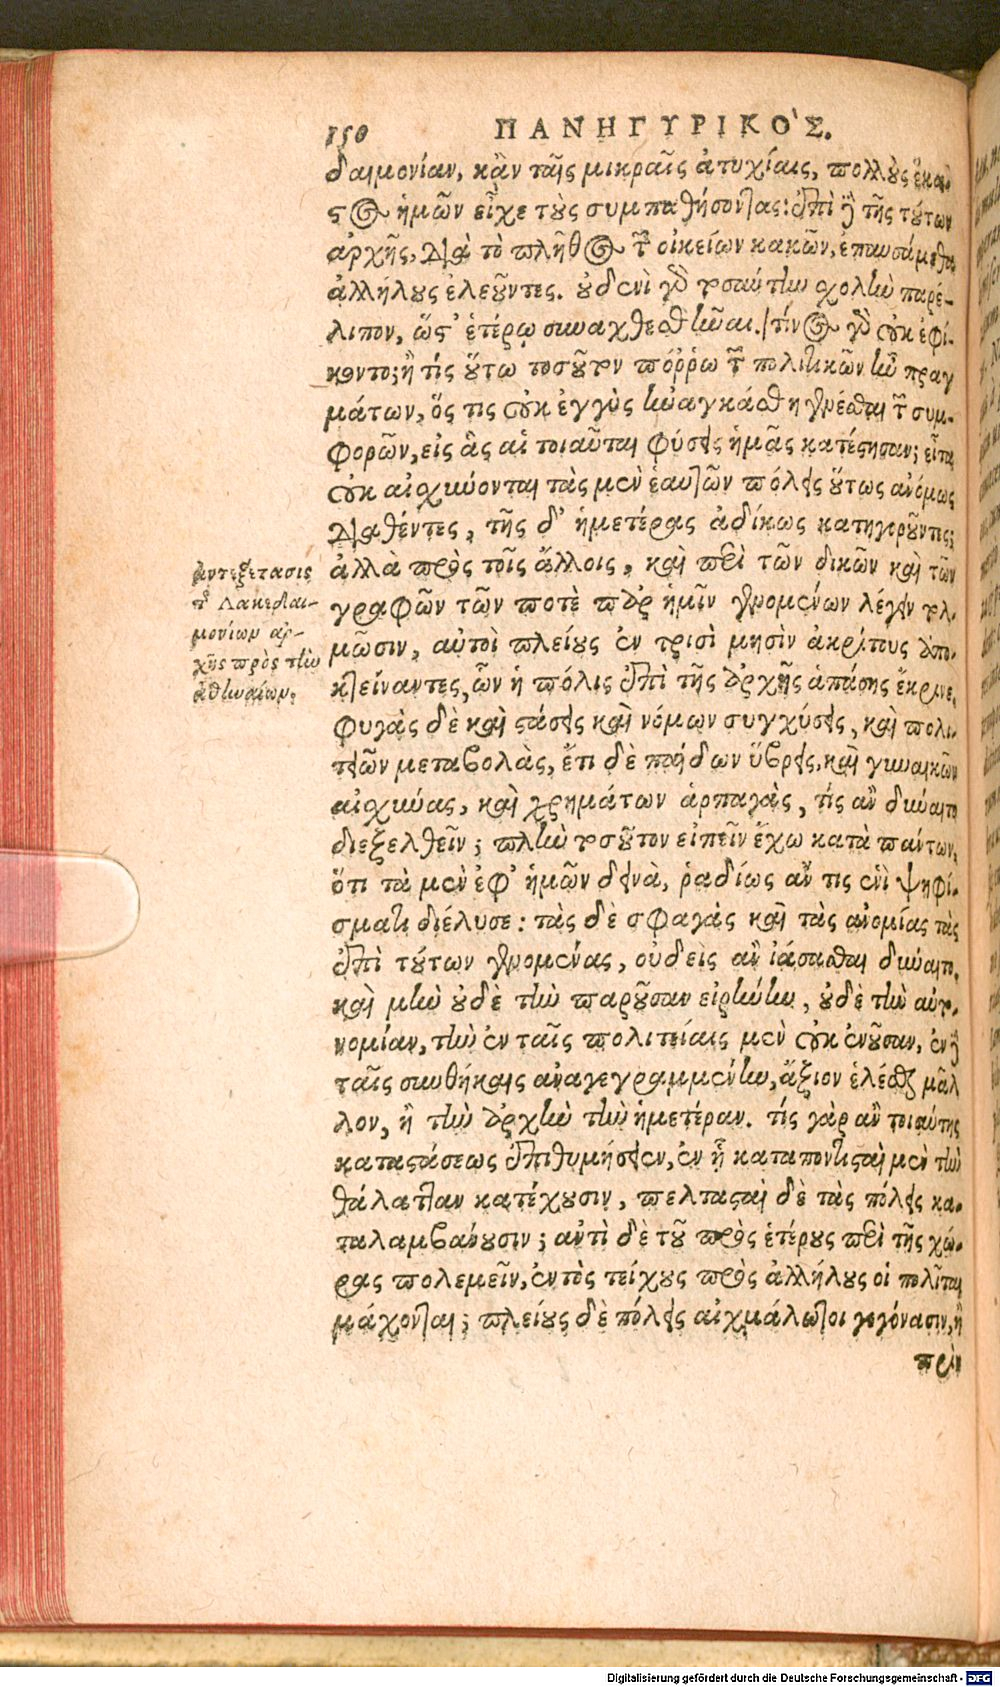 150 ΠΑΝΗΓΥΡΙΚΟΣ.
δαιμονίαν, κἂν ταῖς μικραῖς ἀτυχίαις, πολλοὺς ἕκα-
στος ἡμῶν εἶχε τοὺς συμπαθήσοντας: ἐπὶ δὲ τῆς τούτων
ἀρχῆς, διὰ τὸ πλῆθος τῶν οἰκείων κακῶν, ἐπαυσάμεθα
ἀλλήλους ἐλεοῦντες. οὐδενὶ γὰρ τοσαύτην σχολὴν παρέ-
λιπον, ὥσθ' ἑτέρῳ συναχθεσθῆναι. τίνος γὰρ οὐκ ἐφί-
κοντο; ἢ τίς οὕτω τοσοῦτον πόῤῥω τῶν πολιτικῶν ἦν πραγ
μάτων, ὅς τις οὐκ ἐγγὺς ἠναγκάσθη γενέσθαι τῶν συμ-
φορῶν, εἰς ἃς αἱ τοιαῦται φύσεις ἡμᾶς κατέστησαν; εἶτα
οὐκ αἰσχύονται τὰς μὲν ἑαυτῶν πόλεις οὕτως ἀνόμως
διαθέντες, τῆς δ' ἡμετέρας ἀδίκως κατηγοροῦντες;
ἀλλὰ πρὸς τοῖς ἄλλοις, καὶ περὶ τῶν δικῶν καὶ τῶν
γραφῶν τῶν ποτὲ παρ' ἡμῖν γενομένων λέγειν τολ-
μῶσιν, αὐτοὶ πλείους ἐν τρισὶ μησὶν ἀκρίτους ἀπο-
κτείναντες, ὧν ἡ πόλις ἐπὶ τῆς ἀρχῆς ἁπάσης ἔκρινε.
φυγὰς δὲ καὶ στάσεις καὶ νόμων συγχύσεις, καὶ πολι-
τειῶν μεταβολὰς, ἔτι δὲ παίδων ὕβρεις, καὶ γυναικῶν
αἰσχύνας, καὶ χρημάτων ἁρπαγὰς, τίς ἂν δύναιτο
διεξελθεῖν; πλὴν τοσοῦτον εἰπεῖν ἔχω κατὰ πάντων,
ὅτι τὰ μὲν ἐφ' ἡμῶν δεινὰ, ῥαδίως ἄν τις ἑνὶ ψηφί-
σματι διέλυσε: τὰς δὲ σφαγὰς καὶ τὰς ἀνομίας τὰς
ἐπὶ τούτων γενομένας, οὐδεὶς ἂν ἰάσασθαι δύναιτο.
καὶ μὴν οὐδὲ τὴν παροῦσαν εἰρήνην, οὐδὲ τὴν αὐτο-
νομίαν, τὴν ἐν ταῖς πολιτείαις μὲν οὐκ ἐνοῦσαν, ἐν δὲ
ταῖς συνθήκαις ἀναγεγραμμένην, ἄξιον ἑλέσθαι μᾶλ
λον, ἢ τὴν ἀρχὴν τὴν ἡμετέραν. τίς γὰρ ἂν τοιαύτης
καταστάσεως ἐπιθυμήσειεν, ἐν ᾗ καταποντισταὶ μὲν τὴν
θάλατταν κατέχουσιν, πελτασταὶ δὲ τὰς πόλεις κα-
ταλαμβάνουσιν; ἀντὶ δὲ τοῦ πρὸς ἑτέρους περὶ τῆς χώ-
ρας πολεμεῖν, ἐντὸς τείχους πρὸς ἀλλήλους οἱ πολῖται
μάχονται; πλείους δὲ πόλεις αἰχμάλωτοι γεγόνασιν, ἢ
πρὶν
ἀντεξέτασις
τῆς Λακεδαι-
μονίων ἀρ-
χῆς πρὸς τὴν
ἀθηναίων.
Digitalisierung gefördert durch die Deutsche Forschungsgemeinschaft - DFG